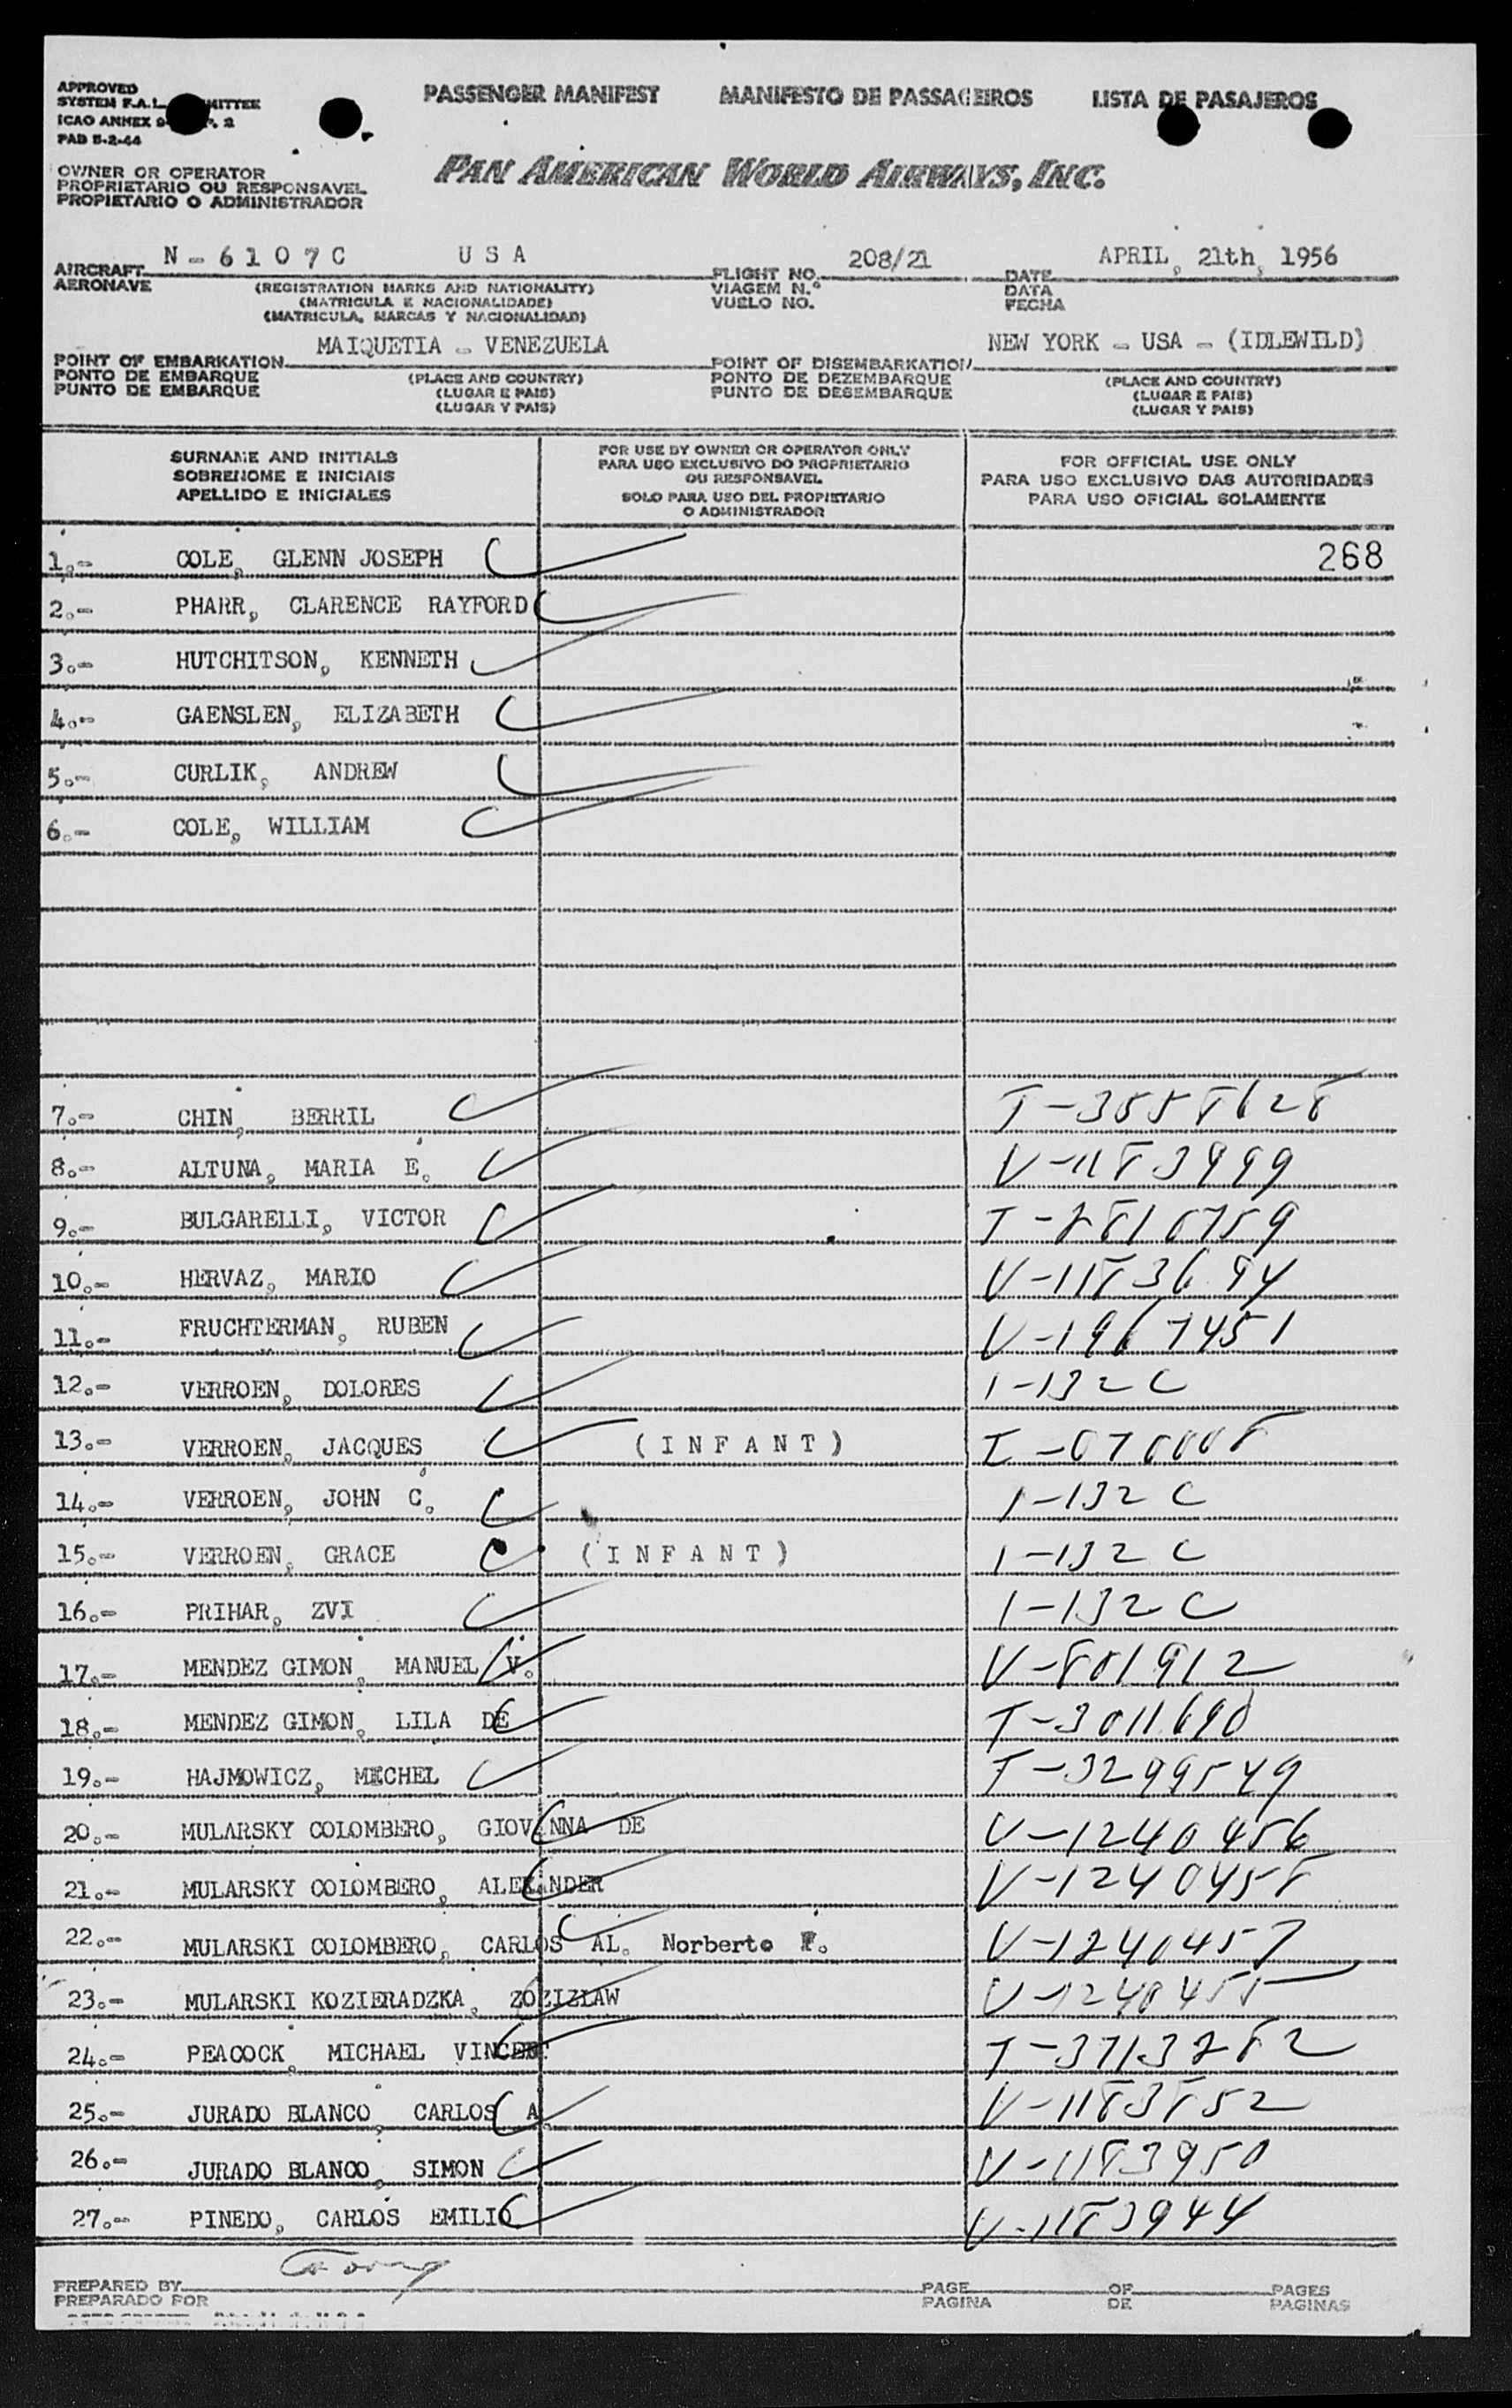 APPROVED
SYSTEM F.A.L. MITTEE
ICAO ANNEX 9 2
PAD 5-2-44
PASSENGER MANIFEST MANIFESTO DE PASSAGEIROS LISTA DE PASAJEROS
OWNER OR OPERATOR
PROPRIETARIO OU RESPONSAVEL
PROPIETARIO O ADMINISTRADOR
PAN AMERICAN WORLD AIRWAYS, INC.
AIRCRAFT N-6107C USA FLIGHT NO. 208/21 DATE APRIL, 21th, 1956
AERONAVE (REGISTRATION MARKS AND NATIONALITY) VIAGEM N.º DATA
(MATRICULA E NACIONALIDADE) VUELO NO. FECHA
(MATRICULA, MARCAS Y NACIONALIDAD)
POINT OF EMBARKATION MAIQUETIA - VENEZUELA POINT OF DISEMBARKATION NEW YORK - USA - (IDLEWILD)
PONTO DE EMBARQUE (PLACE AND COUNTRY) PONTO DE DEZEMBARQUE (PLACE AND COUNTRY)
PUNTO DE EMBARQUE (LUGAR E PAIS) PUNTO DE DESEMBARQUE (LUGAR E PAIS)
(LUGAR Y PAIS) (LUGAR Y PAIS)
SURNAME AND INITIALS
SOBRENOME E INICIAIS
APELLIDO E INICIALES
FOR USE BY OWNER OR OPERATOR ONLY
PARA USO EXCLUSIVO DO PROPRIETARIO
OU RESPONSAVEL
SOLO PARA USO DEL PROPIETARIO
O ADMINISTRADOR
FOR OFFICIAL USE ONLY
PARA USO EXCLUSIVO DAS AUTORIDADES
PARA USO OFICIAL SOLAMENTE
1.- COLE, GLENN JOSEPH 268
2.- PHARR, CLARENCE RAYFORD
3.- HUTCHITSON, KENNETH
4.- GAENSLEN, ELIZABETH
5.- CURLIK, ANDREW
6.- COLE, WILLIAM
7.- CHIN, BERRIL T-3558628
8.- ALTUNA, MARIA E. V-1183999
9.- BULGARELLI, VICTOR T-2810759
10.- HERVAZ, MARIO V-1183694
11.- FRUCHTERMAN, RUBEN V-1967451
12.- VERROEN, DOLORES 1-132 C
13.- VERROEN, JACQUES (INFANT)
14.- VERROEN, JOHN C. 1-132 C
15.- VERROEN, GRACE (INFANT) 1-132 C
16.- PRIHAR, ZVI 1-132 C
17.- MENDEZ GIMON, MANUEL V. V-801912
18.- MENDEZ GIMON, LILA DE T-3011690
19.- HAJMOWICZ, MECHEL T-3299549
20.- MULARSKY COLOMBERO, GIOVANNA DE V-1240456
21.- MULARSKY COLOMBERO, ALEXANDER V-1240458
22.- MULARSKI COLOMBERO, CARLOS AL. Norberto F. V-1240457
23.- MULARSKI KOZIERADZKA, ZOZIZLAW V-1240455
24.- PEACOCK, MICHAEL VINCENT T-3713282
25.- JURADO BLANCO, CARLOS A. V-1183852
26.- JURADO BLANCO, SIMON V-1183950
27.- PINEDO, CARLOS EMILIO V-1183944
PREPARED BY PAGE OF PAGES
PREPARADO POR PAGINA DE PAGINAS